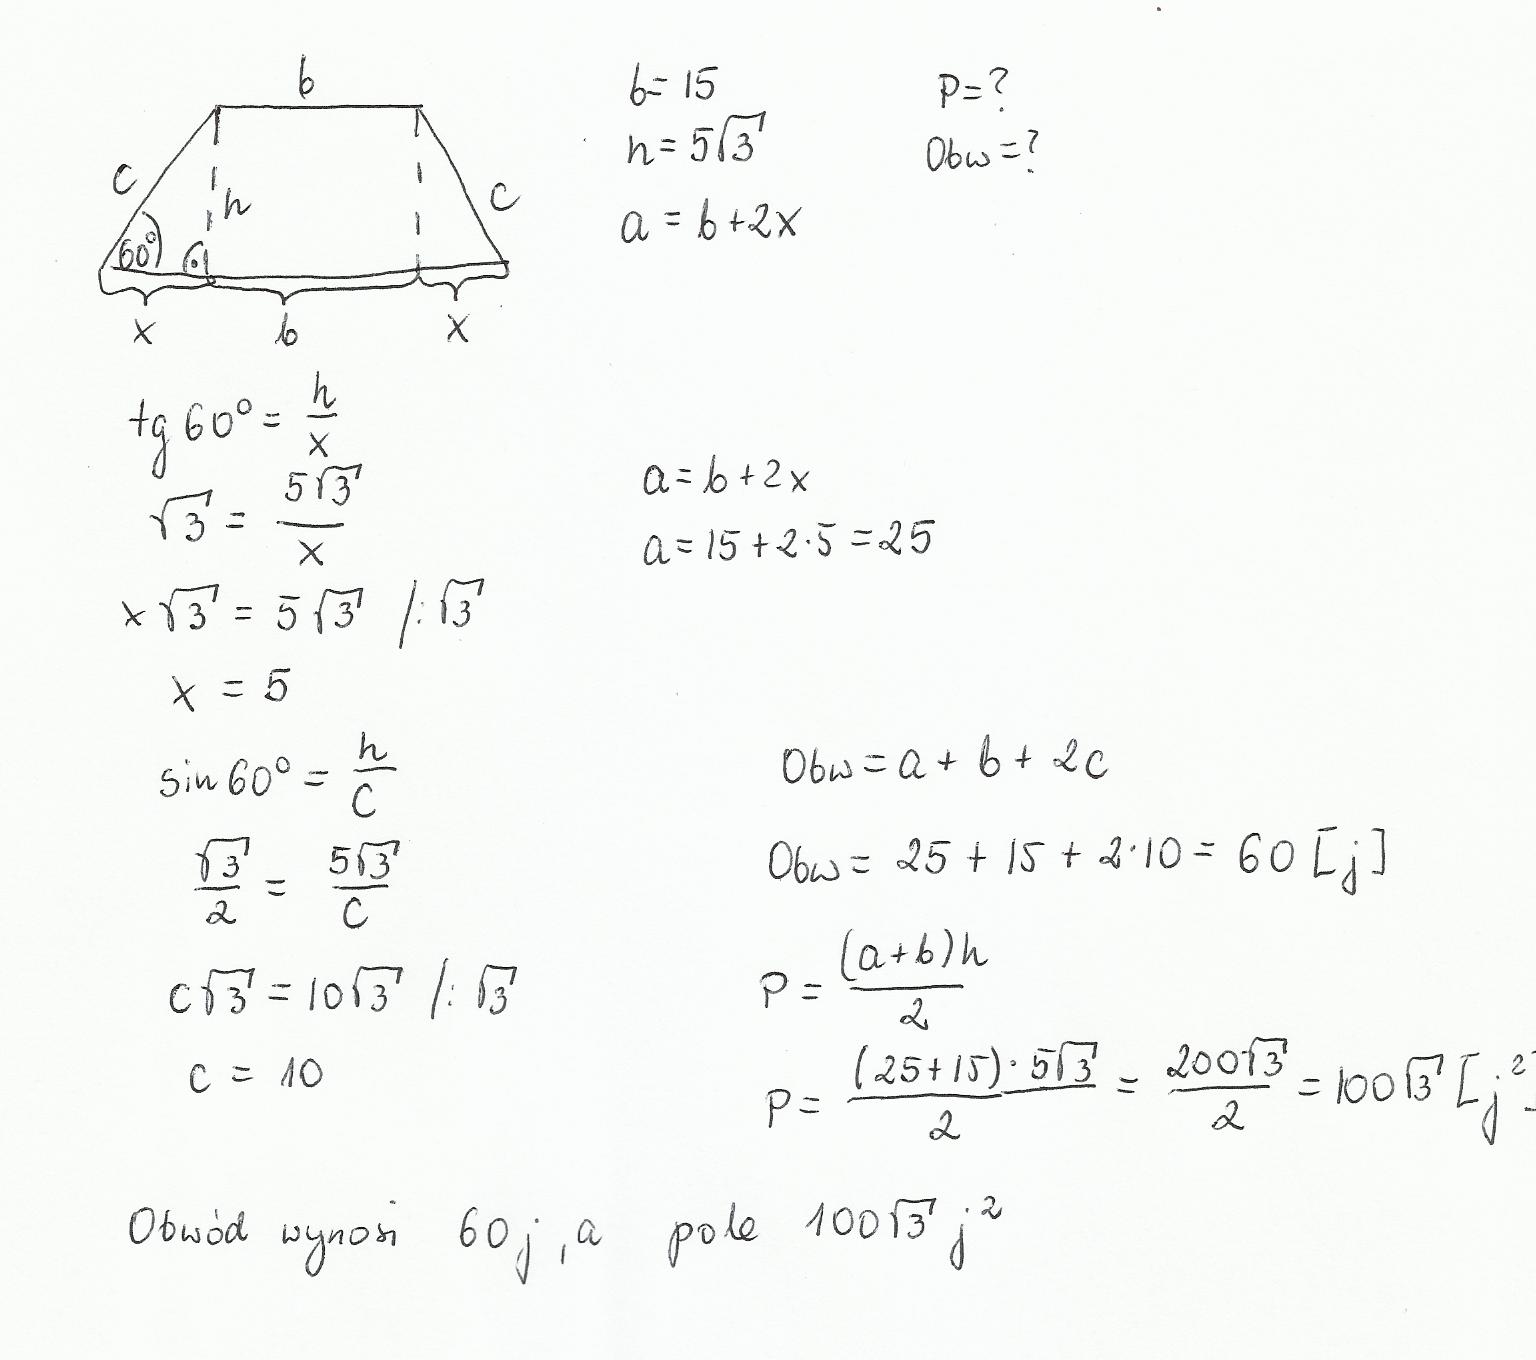 b
c
h
c
60°
x
b
x
b = 15
h = 5√3
a = b + 2x
P = ?
Obw = ?
tg 60° = h/x
√3 = 5√3/x
x√3 = 5√3 /:√3
x = 5
a = b + 2x
a = 15 + 2·5 = 25
sin 60° = h/c
√3/2 = 5√3/c
c√3 = 10√3 /:√3
c = 10
Obw = a + b + 2c
Obw = 25 + 15 + 2·10 = 60 [j]
P = (a+b)h/2
P = (25+15)·5√3/2 = 200√3/2 = 100√3 [j²]
Obwód wynosi 60j, a pole 100√3 j²